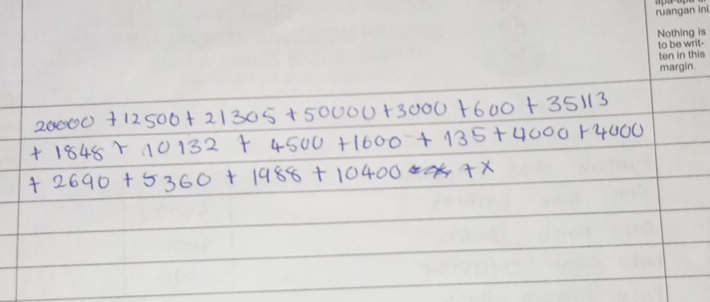 ruangan ini
Nothing is
to be writ-
ten in this
margin.
20000 + 12500 + 21305 + 50000 + 3000 + 600 + 35113
+ 1848 + 10132 + 4500 + 1600 + 135 + 4000 + 4000
+ 2690 + 5360 + 1988 + 10400 + x